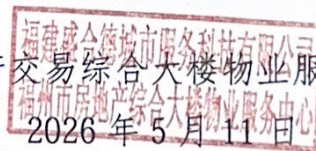 福建盛合德城市服务科技有限公司
交易综合大楼物业服
福州市房地产综合大楼物业服务中心
2026年5月11日